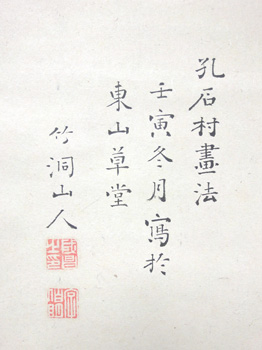 孔石村畫法
壬寅冬月寫於
東山草堂
竹洞山人